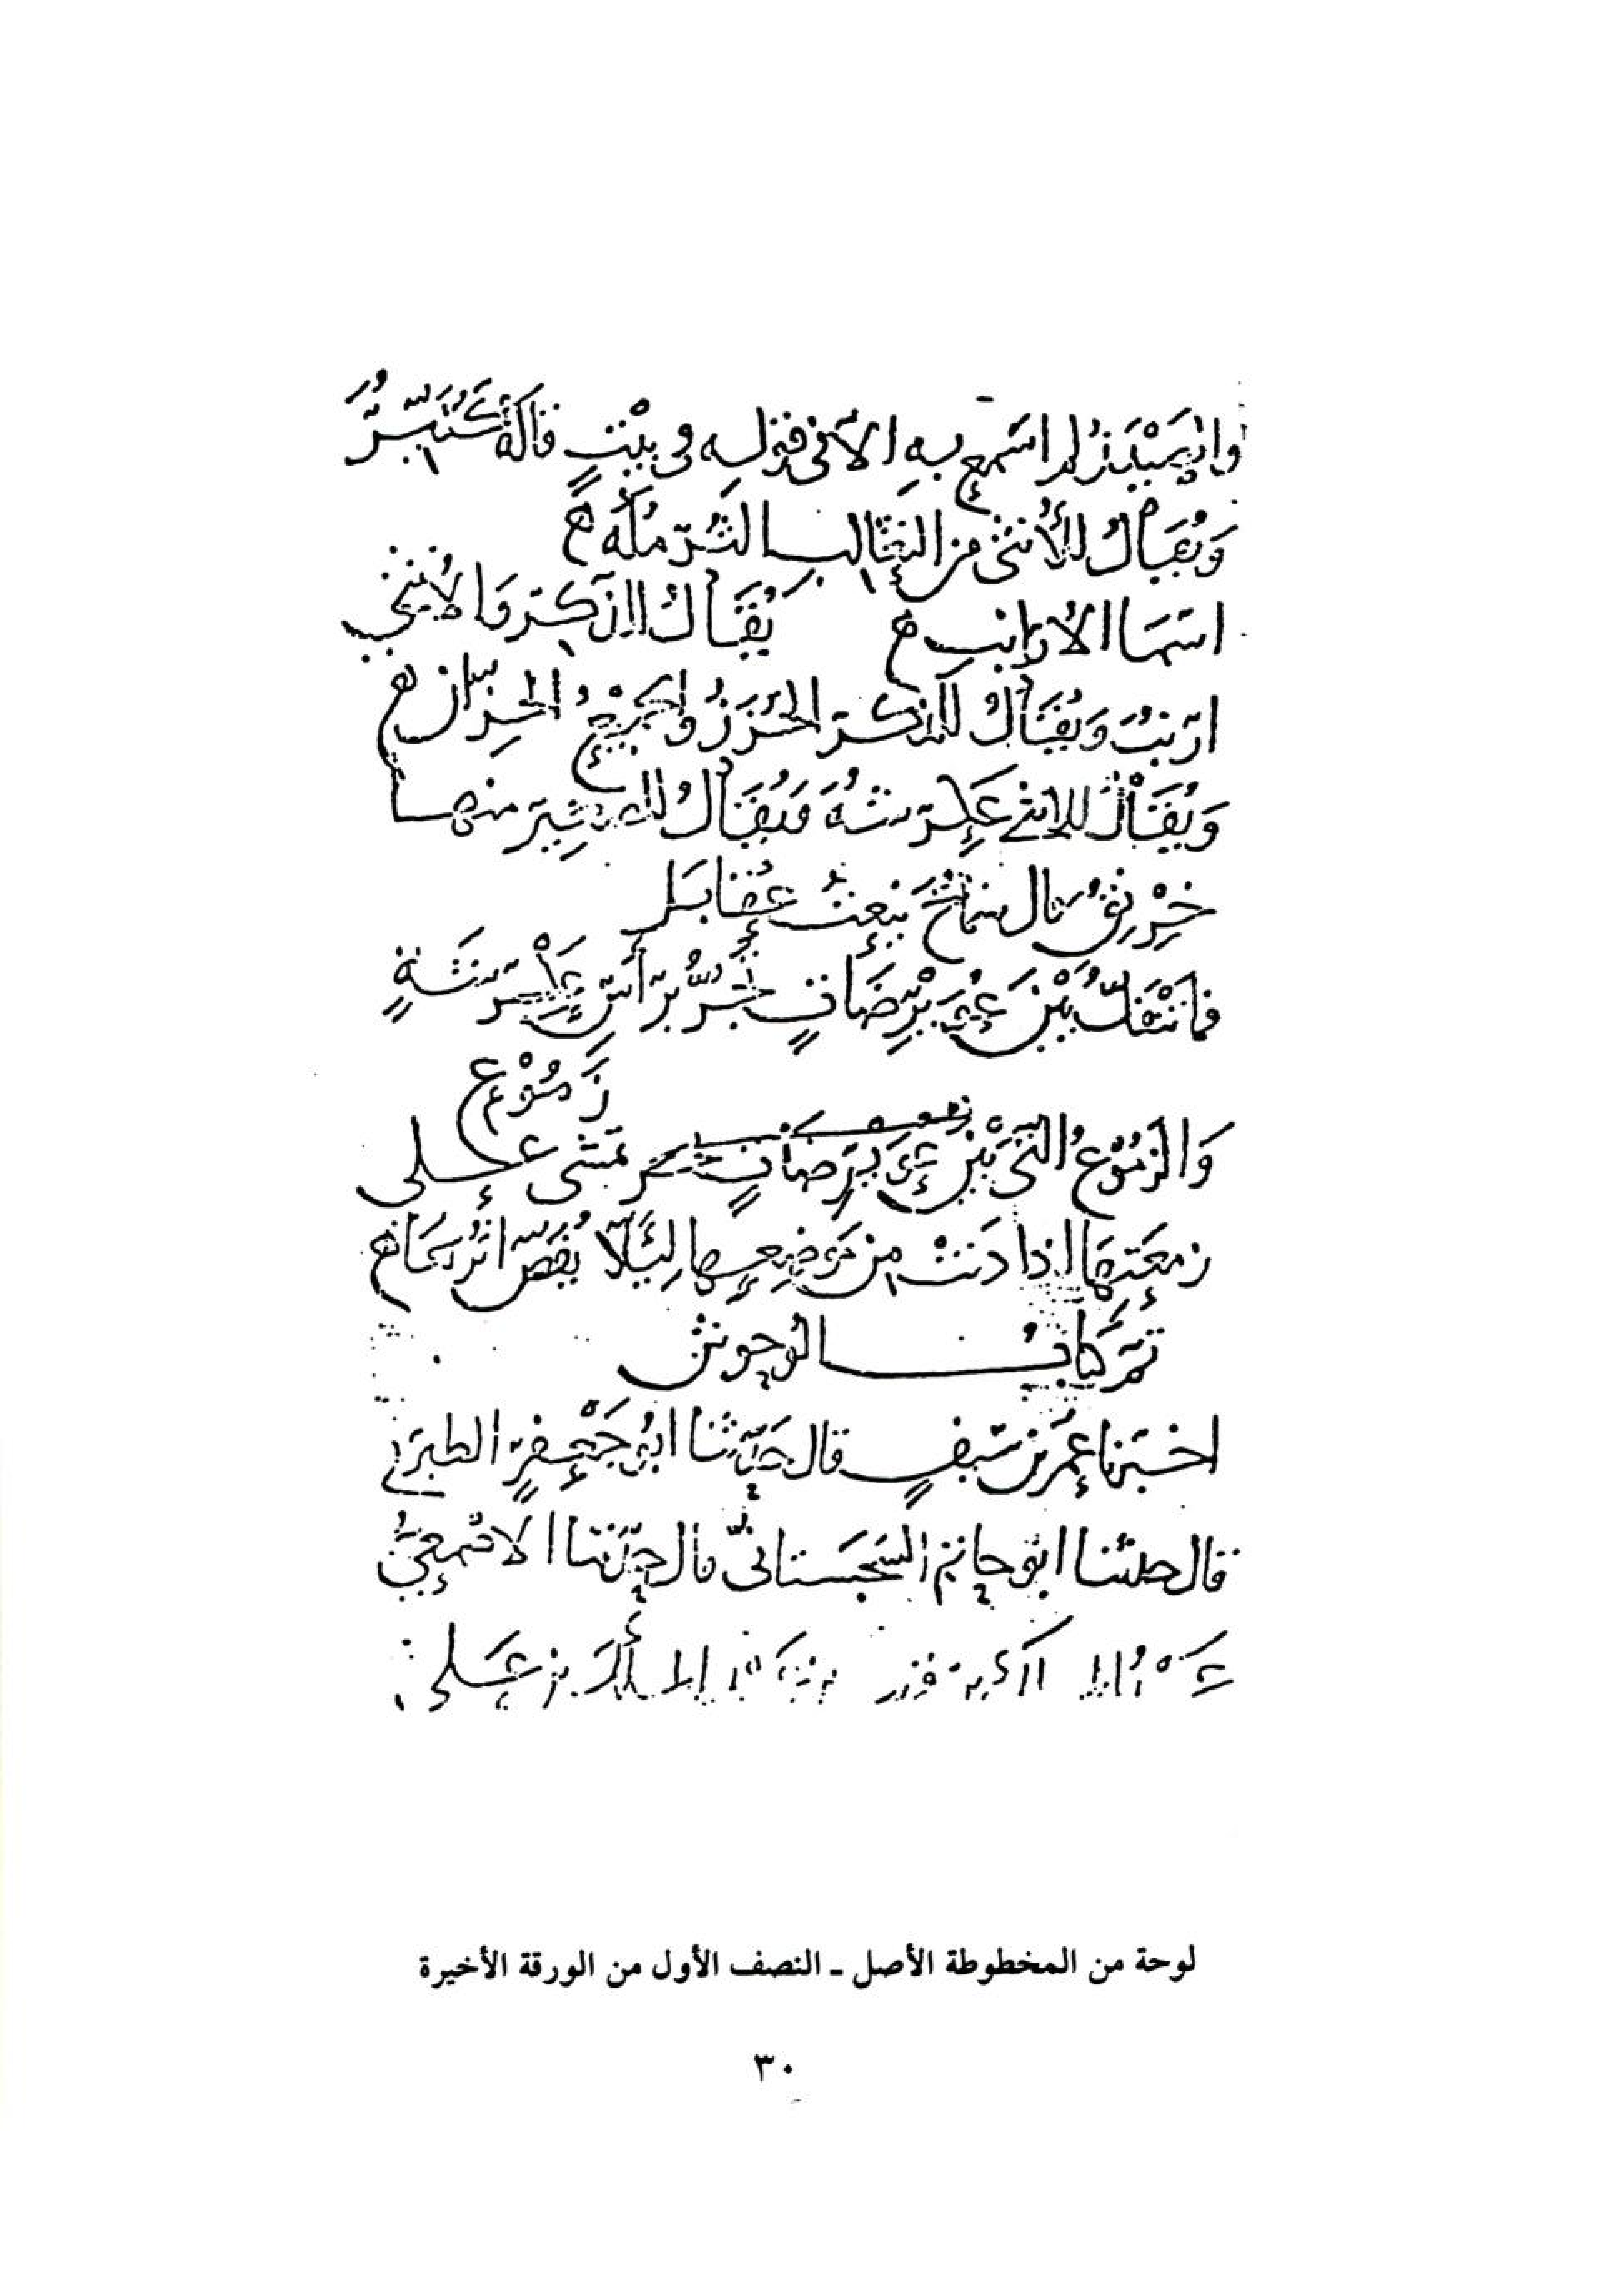 لم اسمع به الا في قوله وبيتٍ قاله كُثَيِّرُ
وَيُقَالُ لِلأُنثى من الثعالب الثُّرْمُلَه
اسْمَا الارانب يُقَالُ للذَّكَر وَالأُنثى
ارْنبٌ وَيُقَالُ للذكر الخُزَزُ والجميعُ الخِزّان
وَيُقَالُ للانثى عِكْرِشَةُ وَيُقَالُ للصغير منها
خِرْنِقٌ قال شماخ ينعتُ عُقَابا
فمَا تَنْفَكُّ بَيْنَ عُوَيْرِضَاتٍ تَجُرُّ برَأسِ عِكْرِشَةٍ
زَمُوْعِ
وَالزمُوْعُ التي بَيْنَ عُوَيْرِضَاتٍ تمشى على
زمعَتِها اذا دَنتْ من مَوْضِعِها لِئَلّا يُقَصّ اثرُهَا
تمَّ كتابُ الوحوش
اخبرنا عمر بن سَيفٍ قال حَدّثنا ابُو جَعْفَرٍ الطبرى
قال حدثنا ابو حاتِم السَّجِسْتانىّ قال حدّثنا الاصْمعىُّ
عبد الملك بن قريب بن على
لوحة من المخطوطة الأصل ـ النصف الأول من الورقة الأخيرة
٣٠